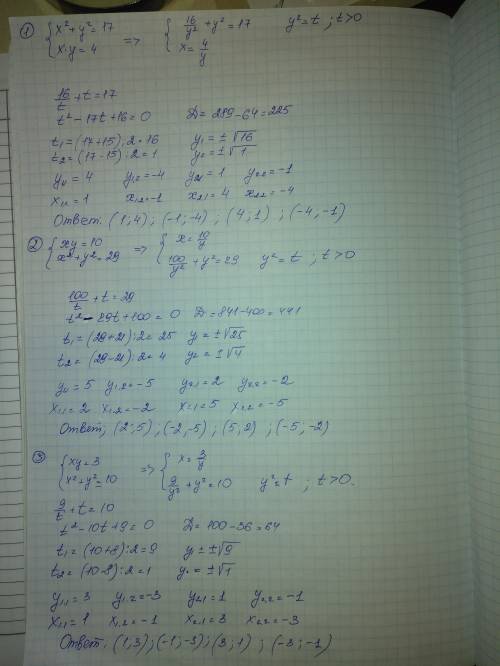 ① { x²+y²=17 => { 16/y² + y²=17 y²=t ; t>0
x·y=4 x=4/y
16/t + t=17
t²-17t+16=0 D=289-64=225
t₁=(17+15):2=16 y₁=±√16
t₂=(17-15):2=1 y₂=±√1
y₁₁=4 y₁.₂=-4 y₂₁=1 y₂.₂=-1
x₁.₁=1 x₁.₂=-1 x₂.₁=4 x₂.₂=-4
Ответ: (1;4); (-1;-4); (4;1); (-4;-1)
② { xy=10 => { x=10/y
x²+y²=29 100/y² + y²=29 y²=t ; t>0
100/t + t=29
t²-29t+100=0 D=841-400=441
t₁=(29+21):2=25 y=±√25
t₂=(29-21):2=4 y₂=±√4
y₁₁=5 y₁.₂=-5 y₂.₁=2 y₂.₂=-2
x₁.₁=2 x₁.₂=-2 x₂.₁=5 x₂.₂=-5
Ответ: (2;5); (-2;-5); (5;2); (-5;-2)
③ { xy=3 => { x=3/y
x²+y²=10 9/y² + y²=10 y²=t ; t>0.
9/t + t=10
t²-10t+9=0 D=100-36=64
t₁=(10+8):2=9 y=±√9
t₂=(10-8):2=1 y₂=±√1
y₁.₁=3 y₁.₂=-3 y₂.₁=1 y₂.₂=-1
x₁.₁=1 x₁.₂=-1 x₂.₁=3 x₂.₂=-3
Ответ: (1;3); (-1;-3); (3;1); (-3;-1)